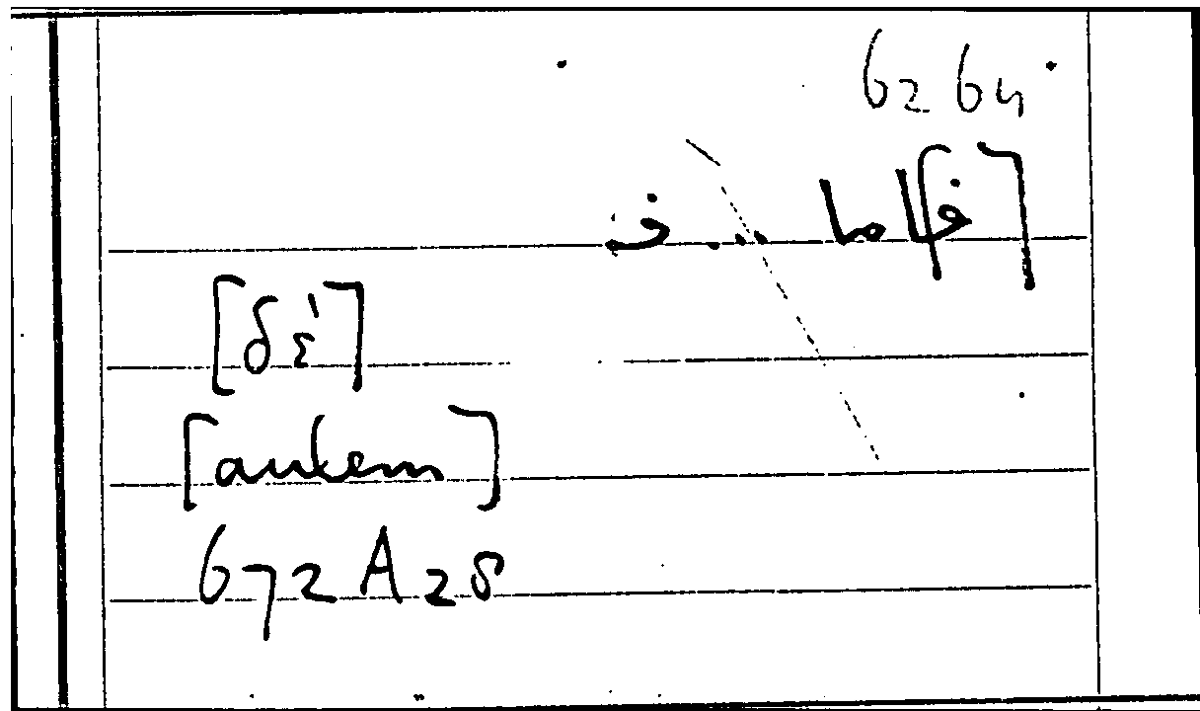 6264
[ف]اما ... فـ
[δέ]
[autem]
672 A 28